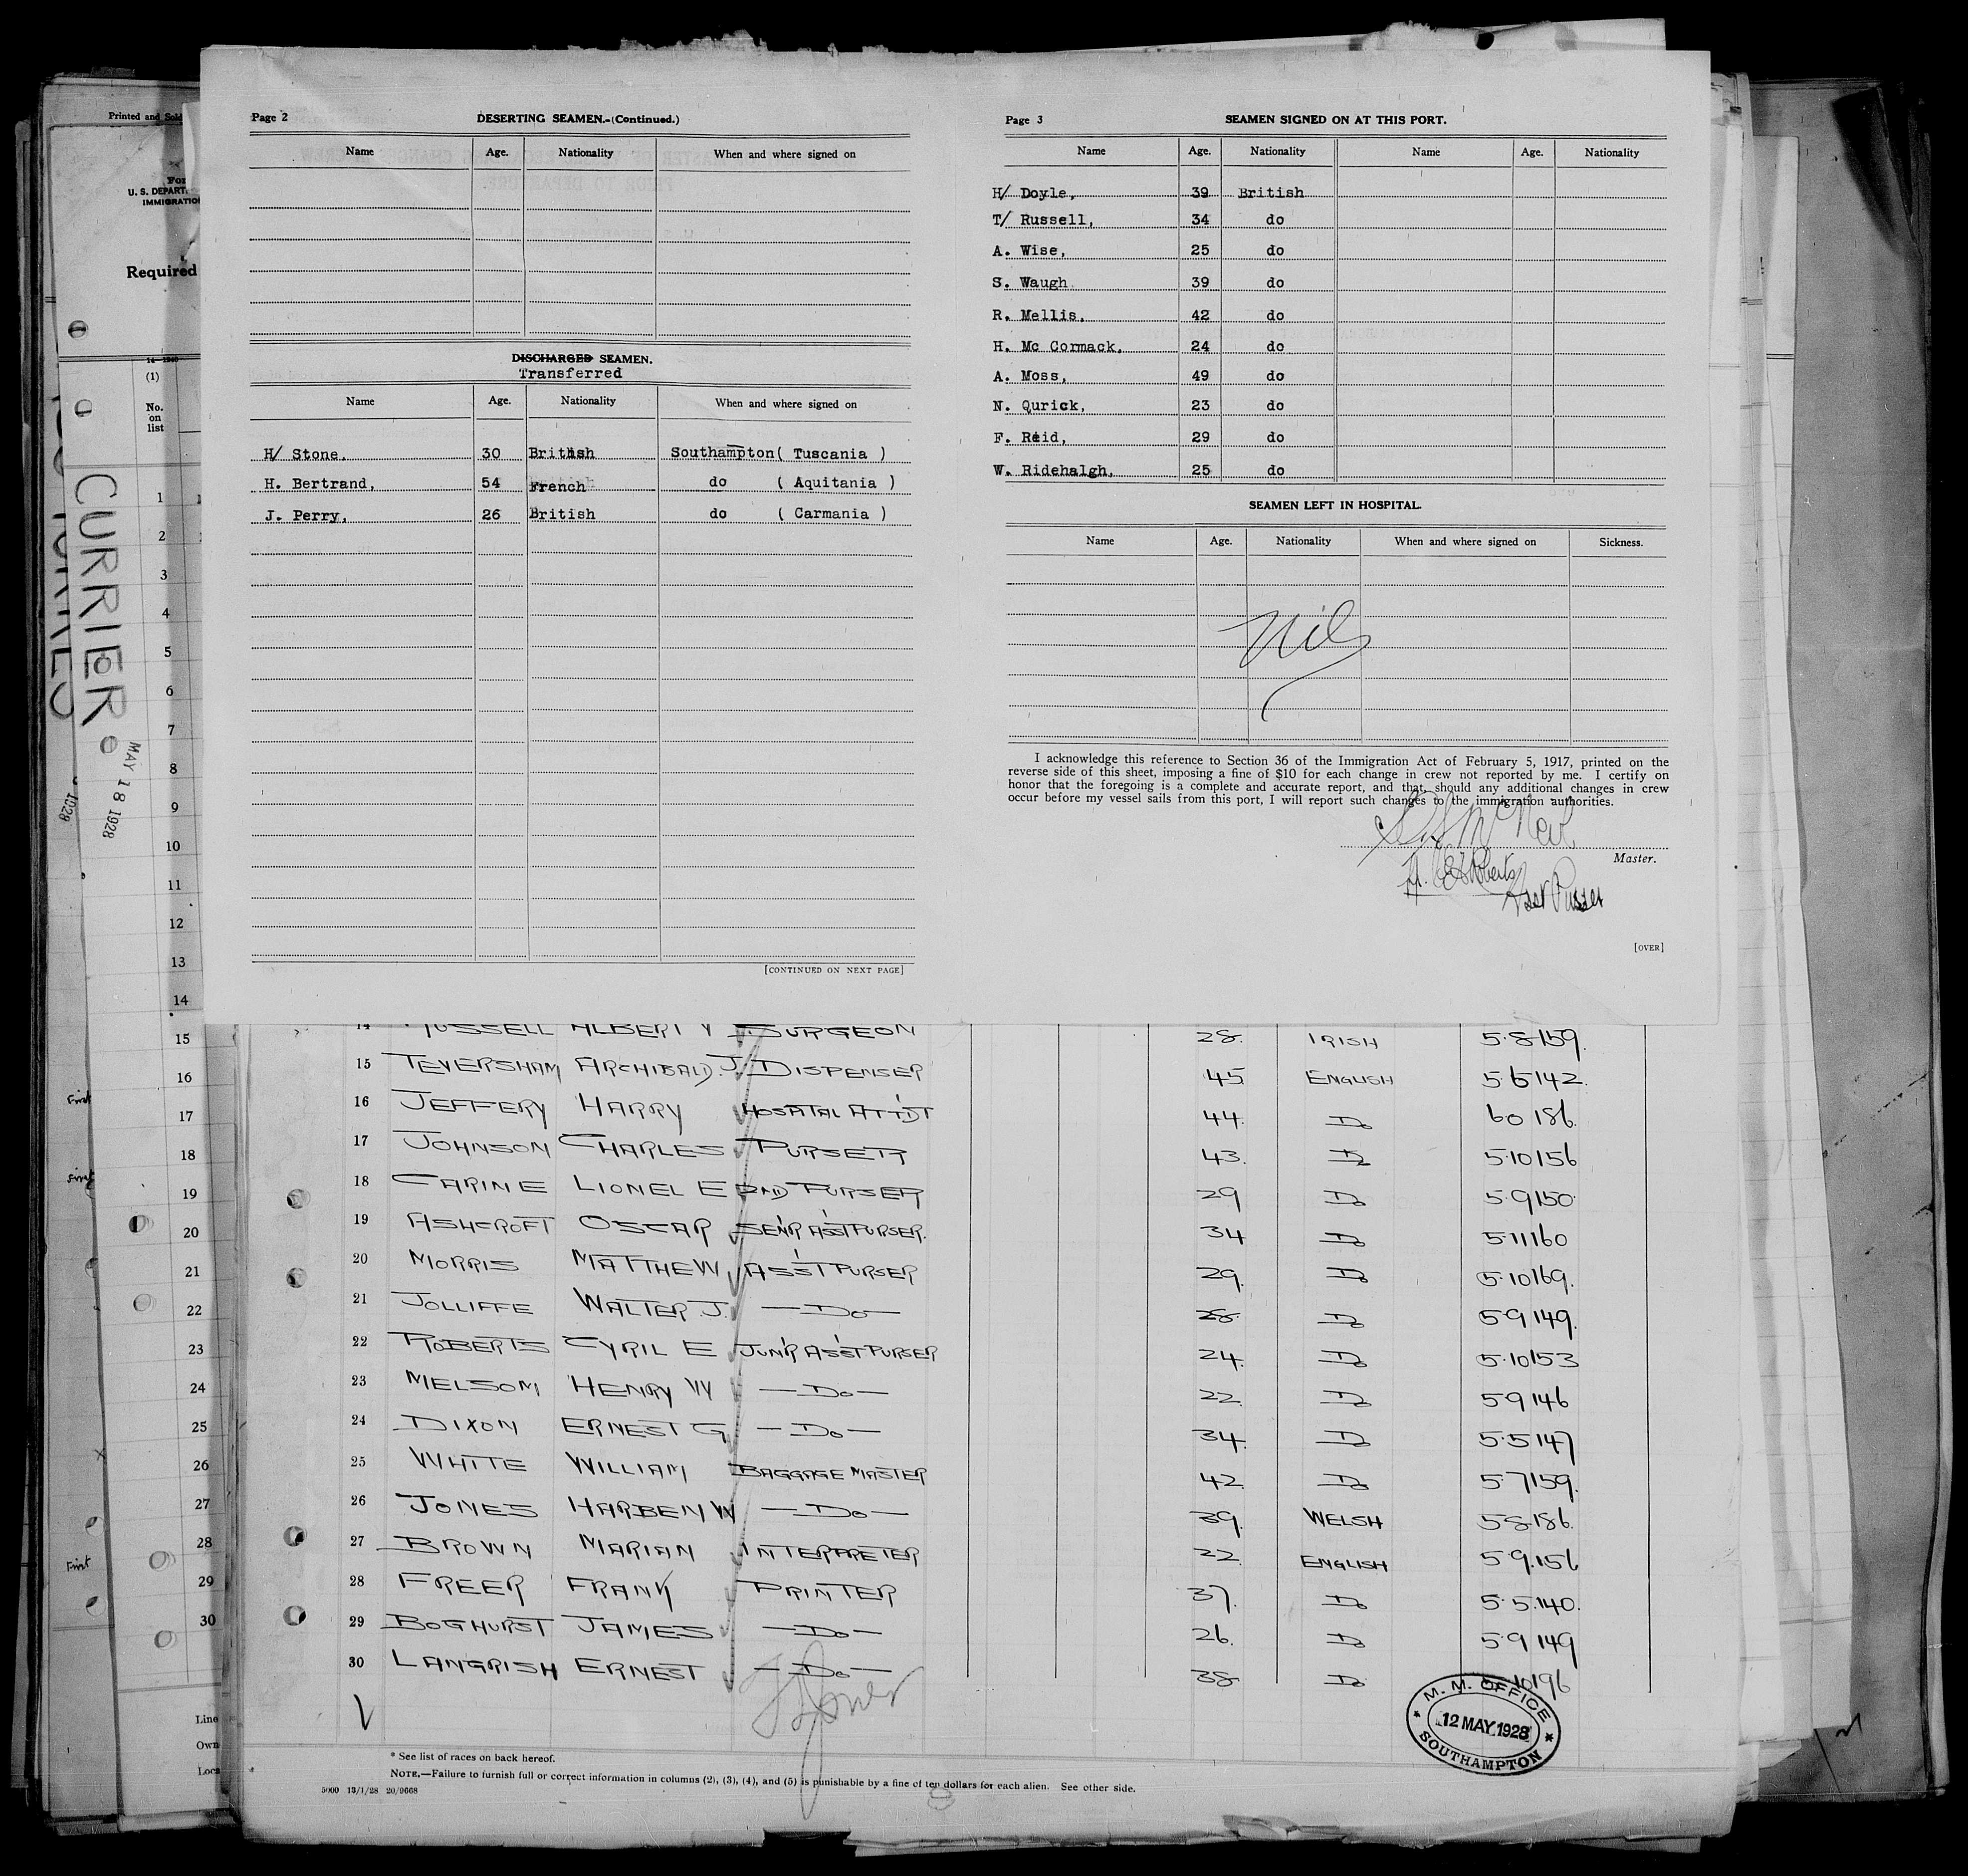 Printed and Sold
U. S. DEPART.
IMMIGRATIO
Required
14—1240
(1)
No.
on
list
CURRIER
MAY 18 1928
1928
1
2
3
4
5
6
7
8
9
10
11
12
13
14
15
16
17
18
19
20
21
22
23
24
25
26
27
28
29
30
First
First
First
Line
Own
Loca
Page 2 DESERTING SEAMEN.-(Continued.)
Name Age. Nationality When and where signed on
DISCHARGED SEAMEN.
Transferred
Name Age. Nationality When and where signed on
H/ Stone. 30 British Southampton( Tuscania )
H. Bertrand, 54 French do ( Aquitania )
J. Perry, 26 British do ( Carmania )
[CONTINUED ON NEXT PAGE]
Page 3 SEAMEN SIGNED ON AT THIS PORT.
Name Age. Nationality Name Age. Nationality
H/ Doyle, 39 British
T/ Russell, 34 do
A. Wise, 25 do
S. Waugh 39 do
R. Mellis, 42 do
H. Mc Cormack, 24 do
A. Moss, 49 do
N. Qurick, 23 do
F. Reid, 29 do
W. Ridehalgh, 25 do
SEAMEN LEFT IN HOSPITAL.
Name Age. Nationality When and where signed on Sickness.
Nil
I acknowledge this reference to Section 36 of the Immigration Act of February 5, 1917, printed on the
reverse side of this sheet, imposing a fine of $10 for each change in crew not reported by me. I certify on
honor that the foregoing is a complete and accurate report, and that, should any additional changes in crew
occur before my vessel sails from this port, I will report such changes to the immigration authorities.
McNeil
Master.
Roberts
Asst Purser
[OVER]
14 RUSSELL ALBERT V SURGEON 28. IRISH 5.8 159.
15 TEVERSHAM ARCHIBALD. J. DISPENSER 45 ENGLISH 5.6 142.
16 JEFFERY HARRY HOSPITAL ATT'DT 44. Do 6 0 186.
17 JOHNSON CHARLES PURSER 43. Do 5.10 156
18 CARINE LIONEL E 2ND PURSER 29 Do 5.9 150
19 ASHCROFT OSCAR SEN'R ASS'T PURSER. 34 Do 5.11 160
20 MORRIS MATTHEW ASS'T PURSER 29. Do 5.10 169.
21 JOLLIFFE WALTER J. —Do— 28. Do 5 9 149.
22 ROBERTS CYRIL E JUN'R ASS'T PURSER 24. Do 5.10 153
23 MELSOM HENRY W —Do— 22. Do 5 9 146
24 DIXON ERNEST G —Do— 34. Do 5.5 147
25 WHITE WILLIAM BAGGAGE MASTER 42. Do 5 7 159.
26 JONES HARBEN W —Do— 39. WELSH 5 8 186.
27 BROWN MARIAN INTERPRETER 22. ENGLISH 5 9. 156
28 FREER FRANK PRINTER 37. Do 5 5. 140.
29 BOGHURST JAMES —Do— 26. Do 5 9 149
30 LANGRISH ERNEST —Do— 38. Do 10 196
M. M. OFFICE
12 MAY 1928
SOUTHAMPTON
* See list of races on back hereof.
NOTE.—Failure to furnish full or correct information in columns (2), (3), (4), and (5) is punishable by a fine of ten dollars for each alien. See other side.
5000 13/1/28 20/9668